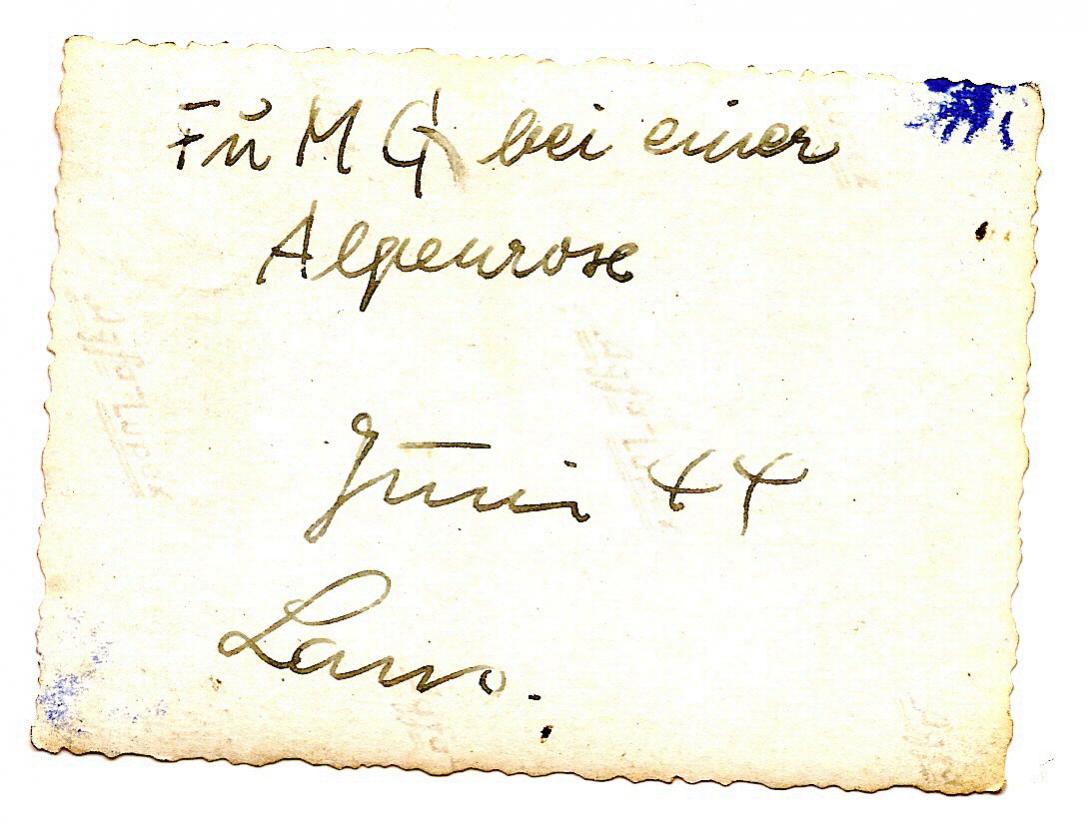 Fu M G bei einer
Alpenrose
Juni 44